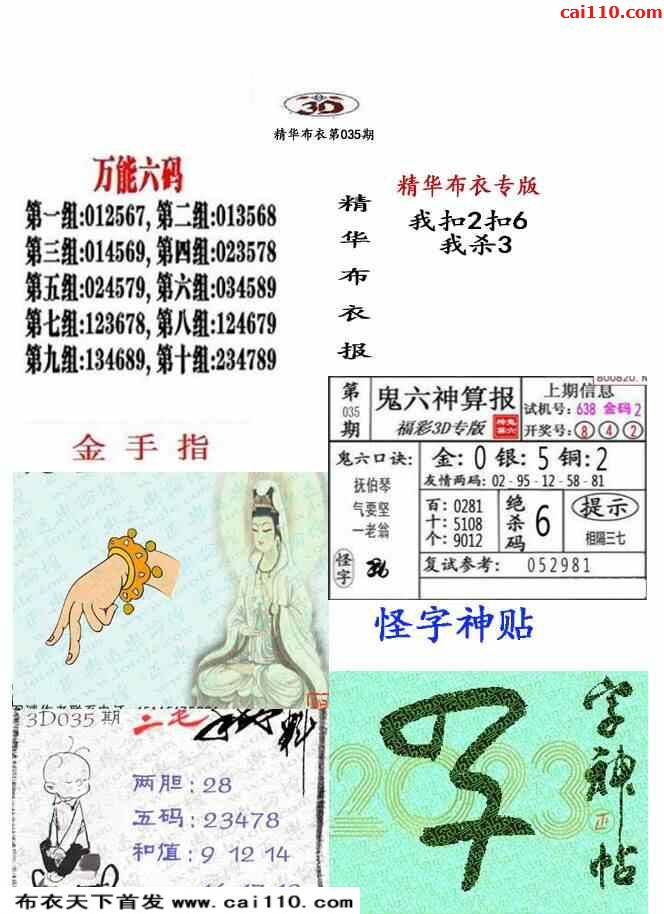 cai110.com
3D
精华布衣第035期
万能六码
第一组:012567, 第二组:013568
第三组:014569, 第四组:023578
第五组:024579, 第六组:034589
第七组:123678, 第八组:124679
第九组:134689, 第十组:234789
精华布衣报
精华布衣专版
我扣2扣6
我杀3
金手指
第035期
鬼六神算报
福彩3D专版
上期信息
试机号: 638 金码 2
开奖号: 8 4 2
鬼六口诀:
抚伯琴
气要坚
一老翁
怪字
金: 0 银: 5 铜: 2
友情两码: 02-95-12-58-81
百: 0281
十: 5108
个: 9012
绝杀码 6
提示
相隔三七
复试参考: 052981
怪字神贴
3D035 期
两胆: 28
五码: 23478
和值: 9 12 14
字神帖
2023
布衣天下首发 www.cai110.com